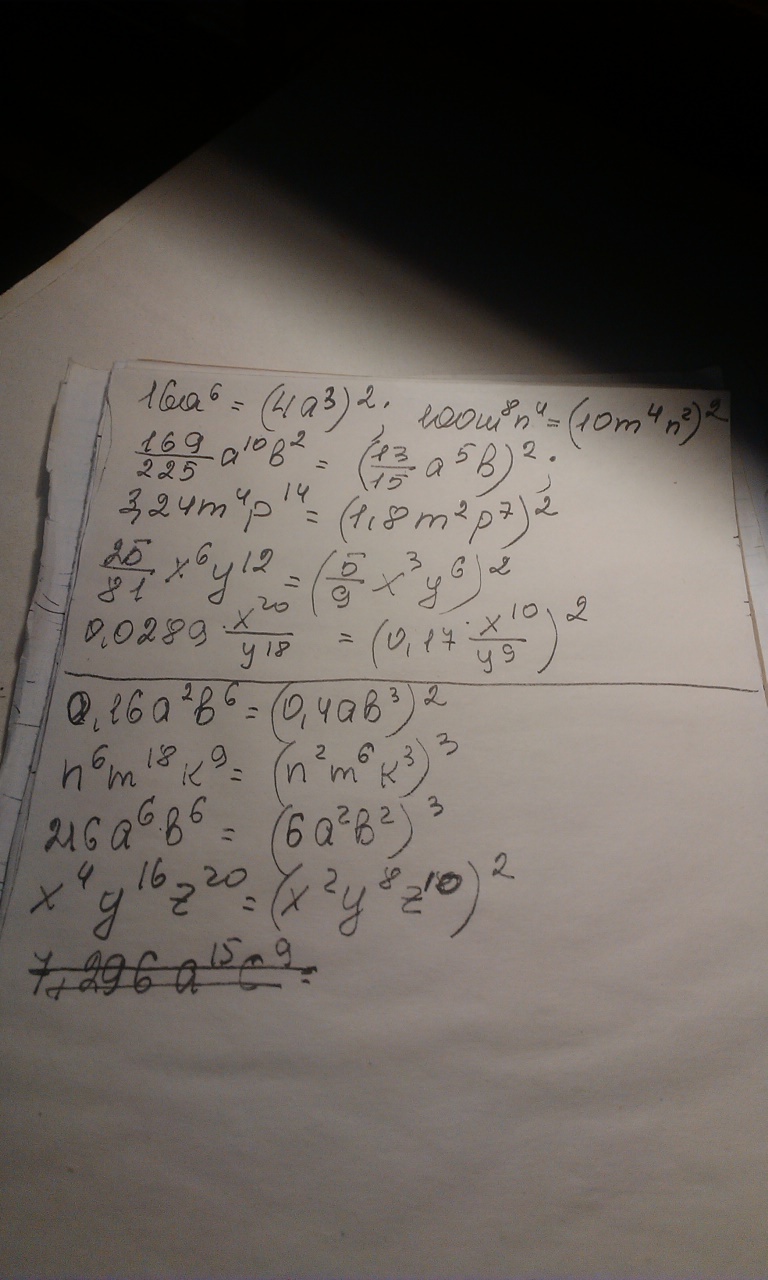 16a⁶ = (4a³)²; 100m⁸n⁴ = (10m⁴n²)²
169/225 a¹⁰b² = (13/15 a⁵b)²;
3,24m⁴p¹⁴ = (1,8m²p⁷)²
25/81 x⁶y¹² = (5/9 x³y⁶)²
0,0289 · x²⁰/y¹⁸ = (0,17 · x¹⁰/y⁹)²
0,16a²b⁶ = (0,4ab³)²
n⁶m¹⁸k⁹ = (n²m⁶k³)³
216a⁶·b⁶ = (6a²b²)³
x⁴y¹⁶z²⁰ = (x²y⁸z¹⁰)²
7,296a¹⁵c⁹ =